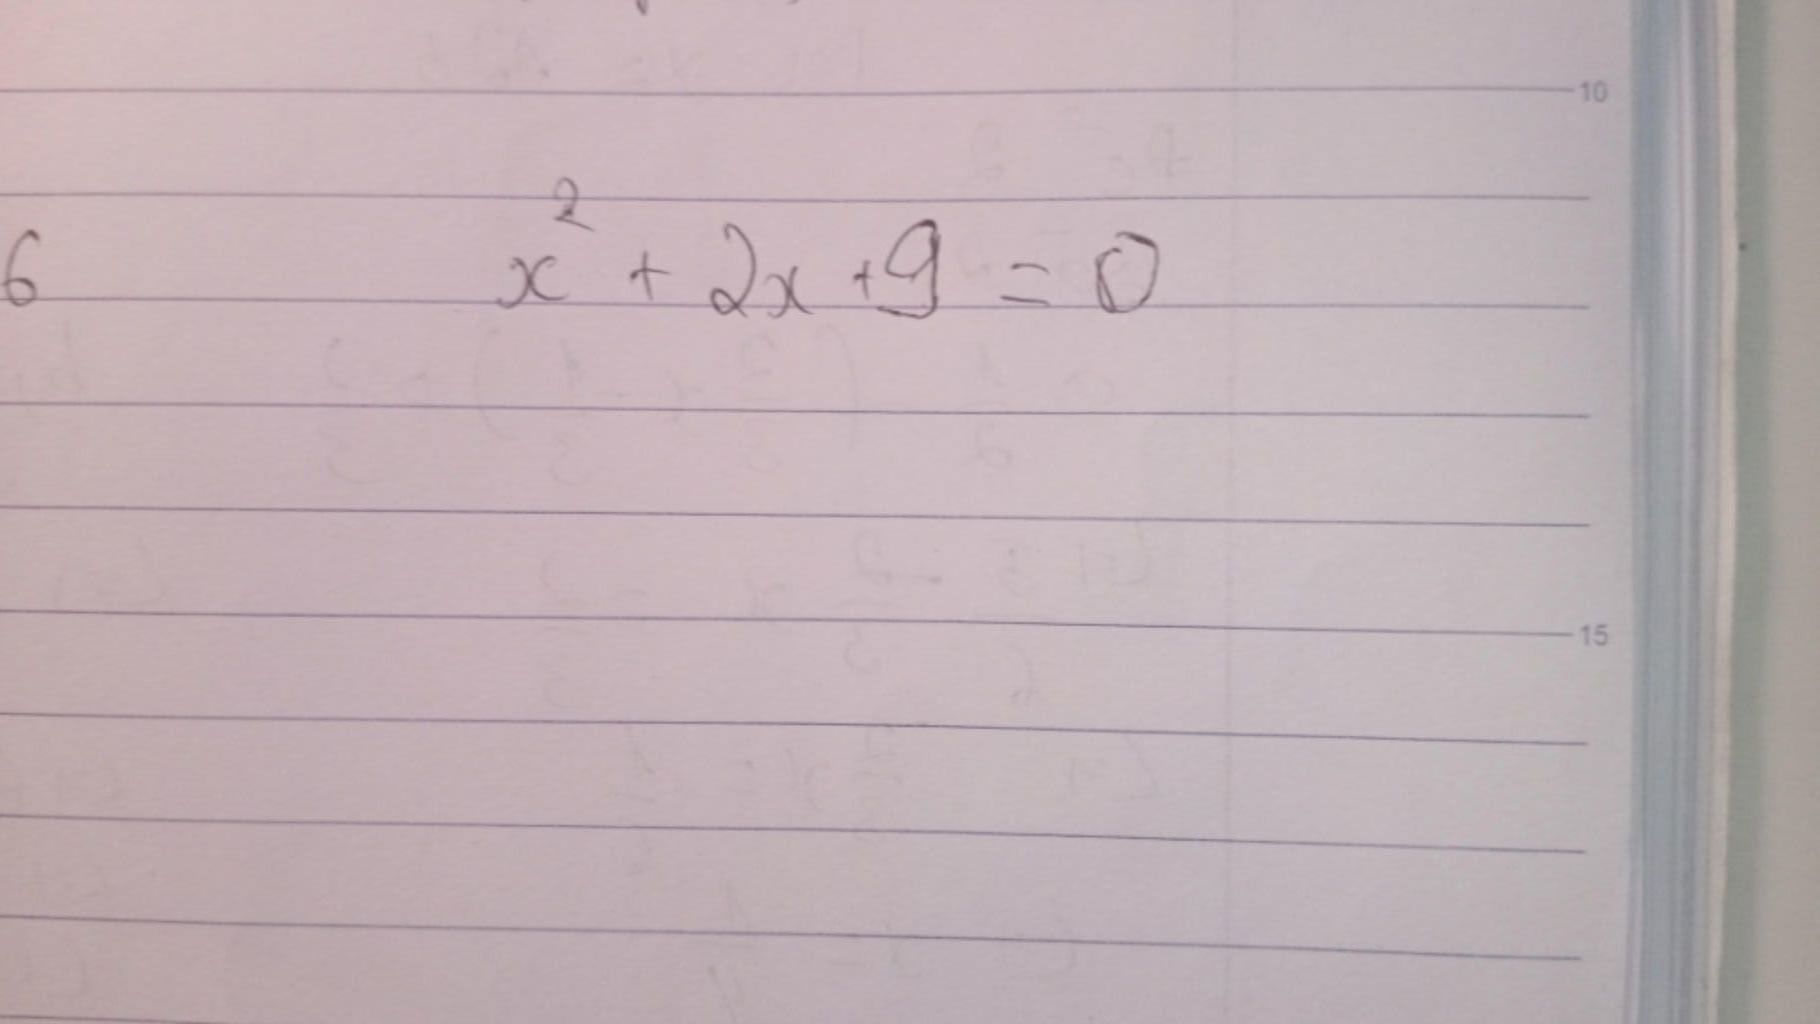 10
6 x² + 2x + 9 = 0
15